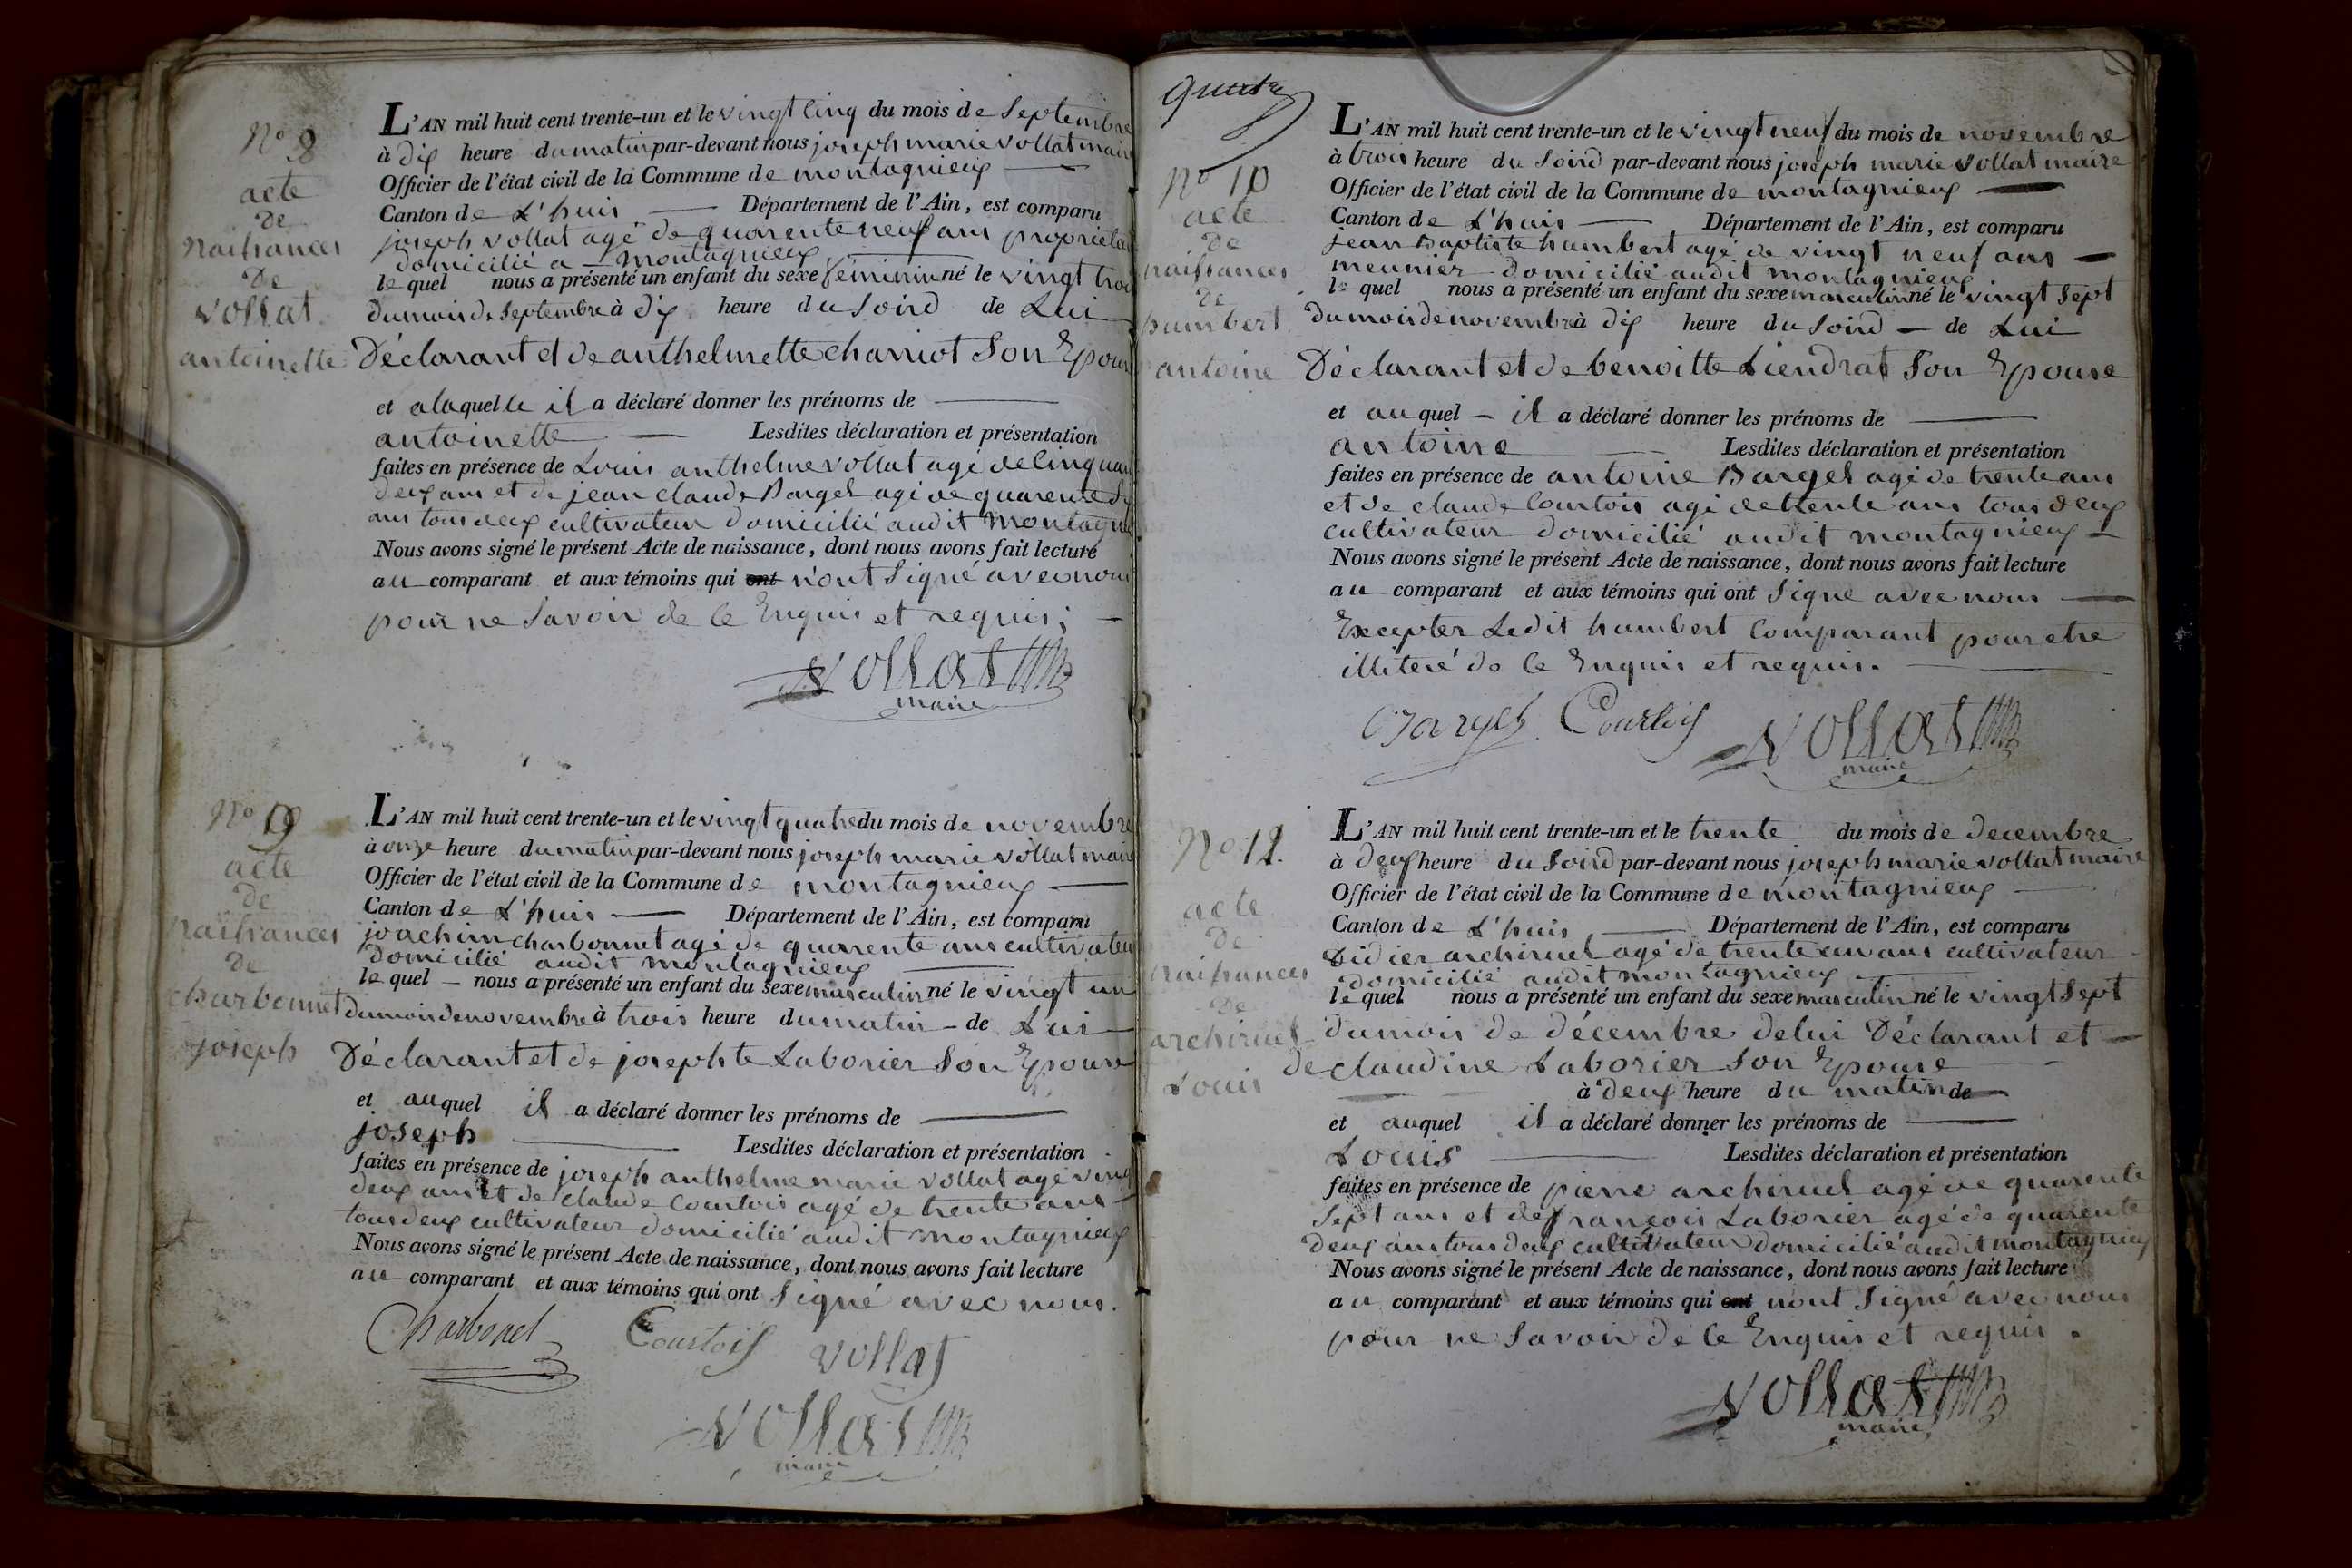 N° 8
acte
de
naissances
de
vollat
antoinette
L'AN mil huit cent trente-un et le vingt cinq du mois de Septembre
à dix heure du matin par-devant nous joseph marie vollat maire
Officier de l'état civil de la Commune de montagnieux
Canton de L'huis Département de l'Ain, est comparu
joseph vollat agé de quarente neuf ans propriétai
domicilié a montagnieux
le quel nous a présenté un enfant du sexe féminin né le vingt troi
du mois de Septembre à dix heure du Soird de Lui
Déclarant et de anthelmette charriot Son Epous
et a laquelle il a déclaré donner les prénoms de
antoinette Lesdites déclaration et présentation
faites en présence de Louis anthelme vollat agé de Cinquan
deux ans et de jean claude Bargel agé de quarente
ans tous deux cultivateur domicilié audit montagn
Nous avons signé le présent Acte de naissance, dont nous avons fait lecture
au comparant et aux témoins qui ont n'ont Signé avec nous
pour ne Savoir de Ce Enquis et requis;
vollat
maire
N° 9
acte
de
naissances
de
charbonnet
joseph
L'AN mil huit cent trente-un et le vingt quatre du mois de novembre
à onze heure du matin par-devant nous joseph marie vollat maire
Officier de l'état civil de la Commune de montagnieux
Canton de L'huis Département de l'Ain, est comparu
joachim charbonnet agé de quarente ans cultivateur
domicilié audit montagnieux
le quel nous a présenté un enfant du sexe masculin né le vingt un
du mois de novembre à trois heure du matin de Lui
Déclarant et de josephte Laborier Son Epouse
et au quel il a déclaré donner les prénoms de
joseph Lesdites déclaration et présentation
faites en présence de joseph anthelme marie vollat agé vingt
deux ans et de claude Courtois agé de trente ans
tous deux cultivateur domicilié audit montagnieux
Nous avons signé le présent Acte de naissance, dont nous avons fait lecture
au comparant et aux témoins qui ont Signé avec nous.
Charbonel Courtois vollat
vollat
maire
N° 10
acte
de
naissances
de
humbert
antoine
L'AN mil huit cent trente-un et le vingt neuf du mois de novembre
à trois heure du Soird par-devant nous joseph marie vollat maire
Officier de l'état civil de la Commune de montagnieux
Canton de L'huis Département de l'Ain, est comparu
jean Baptiste humbert agé de vingt neuf ans
meunier domicilié audit montagnieux
le quel nous a présenté un enfant du sexe masculin né le vingt Sept
du mois de novembre à dix heure du Soird de Lui
Déclarant et de benoitte Liendrat Son Epouse
et au quel il a déclaré donner les prénoms de
antoine Lesdites déclaration et présentation
faites en présence de antoine Bargel agé de trente ans
et de claude Courtois agé de trente ans tous deux
cultivateur domicilié audit montagnieux
Nous avons signé le présent Acte de naissance, dont nous avons fait lecture
au comparant et aux témoins qui ont Signé avec nous
Excepter Ledit humbert Comparant pour etre
illiteré de Ce Enquis et requis.
Bargel Courtois vollat
maire
N° 11.
acte
de
naissances
de
archiruel
Louis
L'AN mil huit cent trente-un et le trente du mois de decembre
à deux heure du Soird par-devant nous joseph marie vollat maire
Officier de l'état civil de la Commune de montagnieux
Canton de L'huis Département de l'Ain, est comparu
didier archiruel agé de trente un ans cultivateur
domicilié audit montagnieux
le quel nous a présenté un enfant du sexe masculin né le vingt Sept
du mois de décembre de lui Déclarant et
de claudine Laborier Son Epouse
à deux heure du matin de
et auquel il a déclaré donner les prénoms de
Louis Lesdites déclaration et présentation
faites en présence de pierre archiruel agé de quarente
Sept ans et de françois Laborier agé de quarente
deux ans tous deux cultivateur domicilié audit montagnieux
Nous avons signé le présent Acte de naissance, dont nous avons fait lecture
au comparant et aux témoins qui ont nont Signé avec nous
pour ne Savoir de Ce Enquis et requis.
vollat
maire